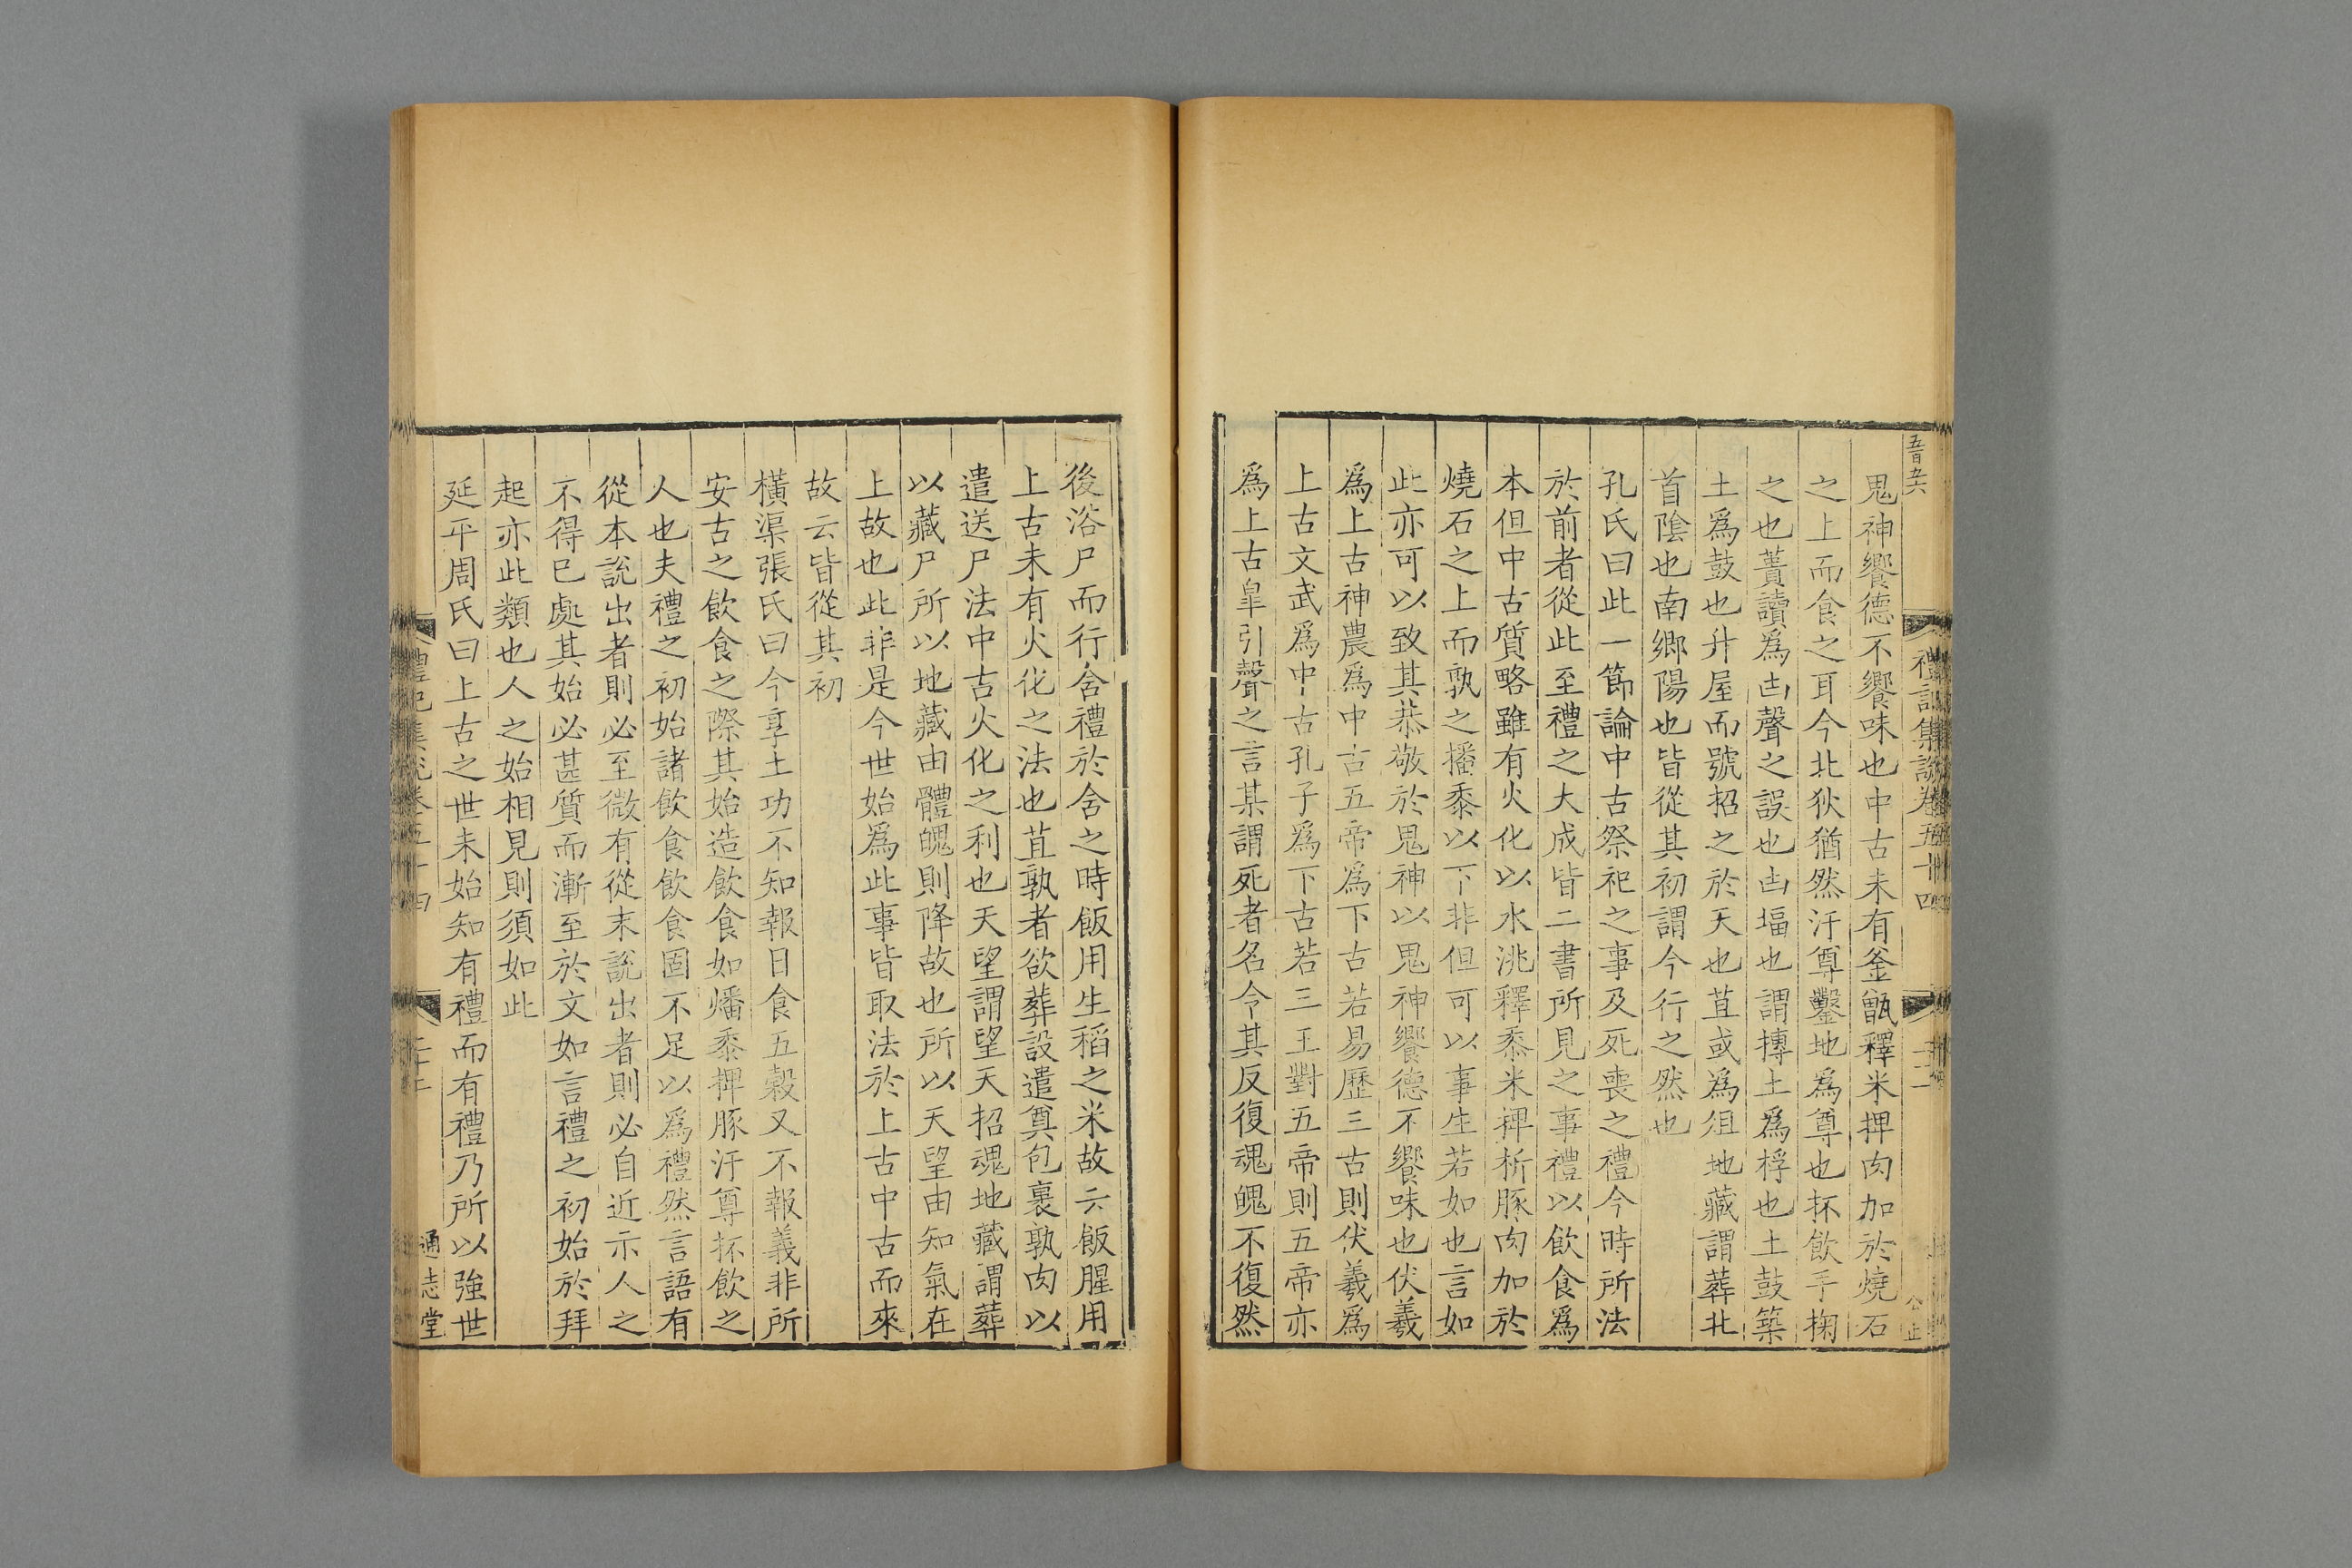 鬼神饗德不饗味也中古未有釜甑釋米捭肉加於燒石
之上而食之耳今北狄猶然汙尊鑿地爲尊也抔飲手掬
之也蕢讀爲凷聲之誤也凷堛也謂摶土爲桴也土鼓築
土爲鼓也升屋而號招之於天也苴或爲俎地藏謂葬北
首陰也南鄉陽也皆從其初謂今行之然也
孔氏曰此一節論中古祭祀之事及死喪之禮今時所法
於前者從此至禮之大成皆二書所見之事禮以飲食爲
本但中古質略雖有火化以水洮釋黍米捭析豚肉加於
燒石之上而孰之播黍以下非但可以事生若如也言如
此亦可以致其恭敬於鬼神以鬼神饗德不饗味也伏羲
爲上古神農爲中古五帝爲下古若易歷三古則伏羲爲
上古文武爲中古孔子爲下古若三王對五帝則五帝亦
爲上古皐引聲之言某謂死者名令其反復魂魄不復然
後浴尸而行含禮於含之時飯用生稻之米故云飯腥用
上古未有火化之法也苴孰者欲葬設遣奠包裹孰肉以
遣送尸法中古火化之利也天望謂望天招魂地藏謂葬
以藏尸所以地藏由體魄則降故也所以天望由知氣在
上故也此非是今世始爲此事皆取法於上古中古而來
故云皆從其初
橫渠張氏曰今享土功不知報日食五穀又不報義非所
安古之飲食之際其始造飲食如燔黍捭豚汙尊抔飲之
人也夫禮之初始諸飲食飲食固不足以爲禮然言語有
從本說出者則必至微有從末說出者則必自近示人之
不得已處其始必甚質而漸至於文如言禮之初始於拜
起亦此類也人之始相見則須如此
延平周氏曰上古之世未始知有禮而有禮乃所以強世
禮記集說卷五十四
通志堂